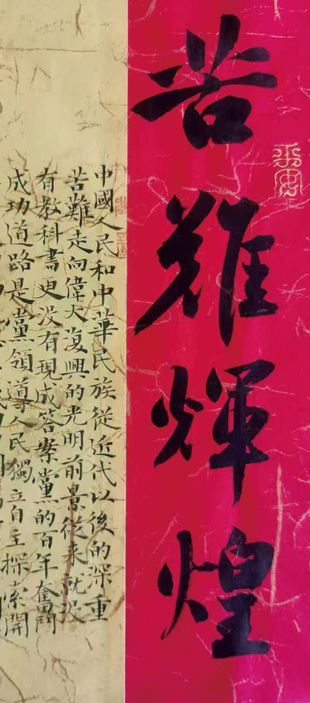 苦難輝煌
中國人民和中華民族從近代以後的深重
苦難走向偉大復興的光明前景從來就沒
有教科書更沒有現成答案黨的百年奮鬥
成功道路是黨領導人民獨立自主探索開